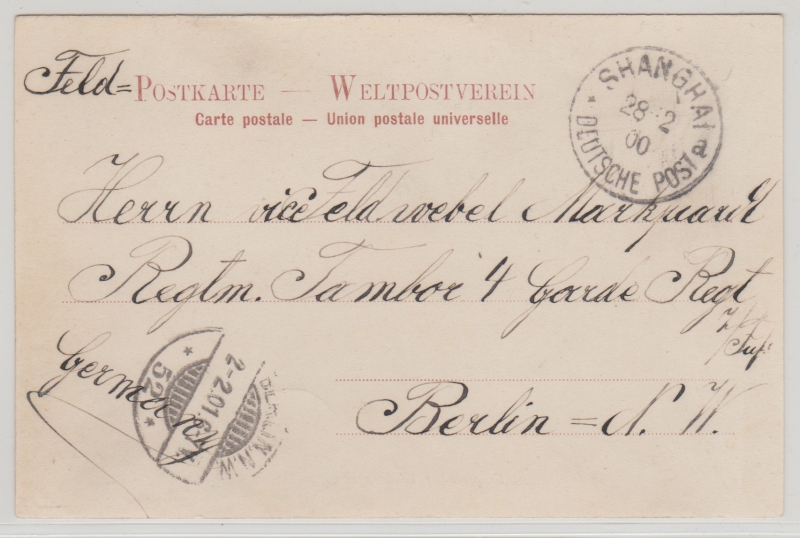 Feld= POSTKARTE — WELTPOSTVEREIN
Carte postale — Union postale universelle
SHANGHAI a
28 12
00
DEUTSCHE POST
Herrn vice Feldwebel Markquardt
Regtm. Tambor 4 Garde Regt
Germany
Berlin = N. W.
BERLIN N.W.
2-2.01.
52